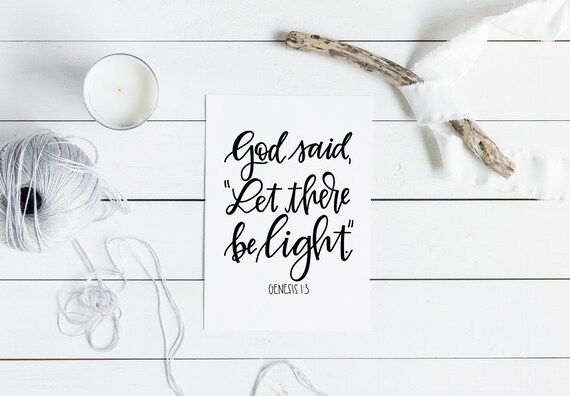 God said,
"Let there
be light"
GENESIS 1:3